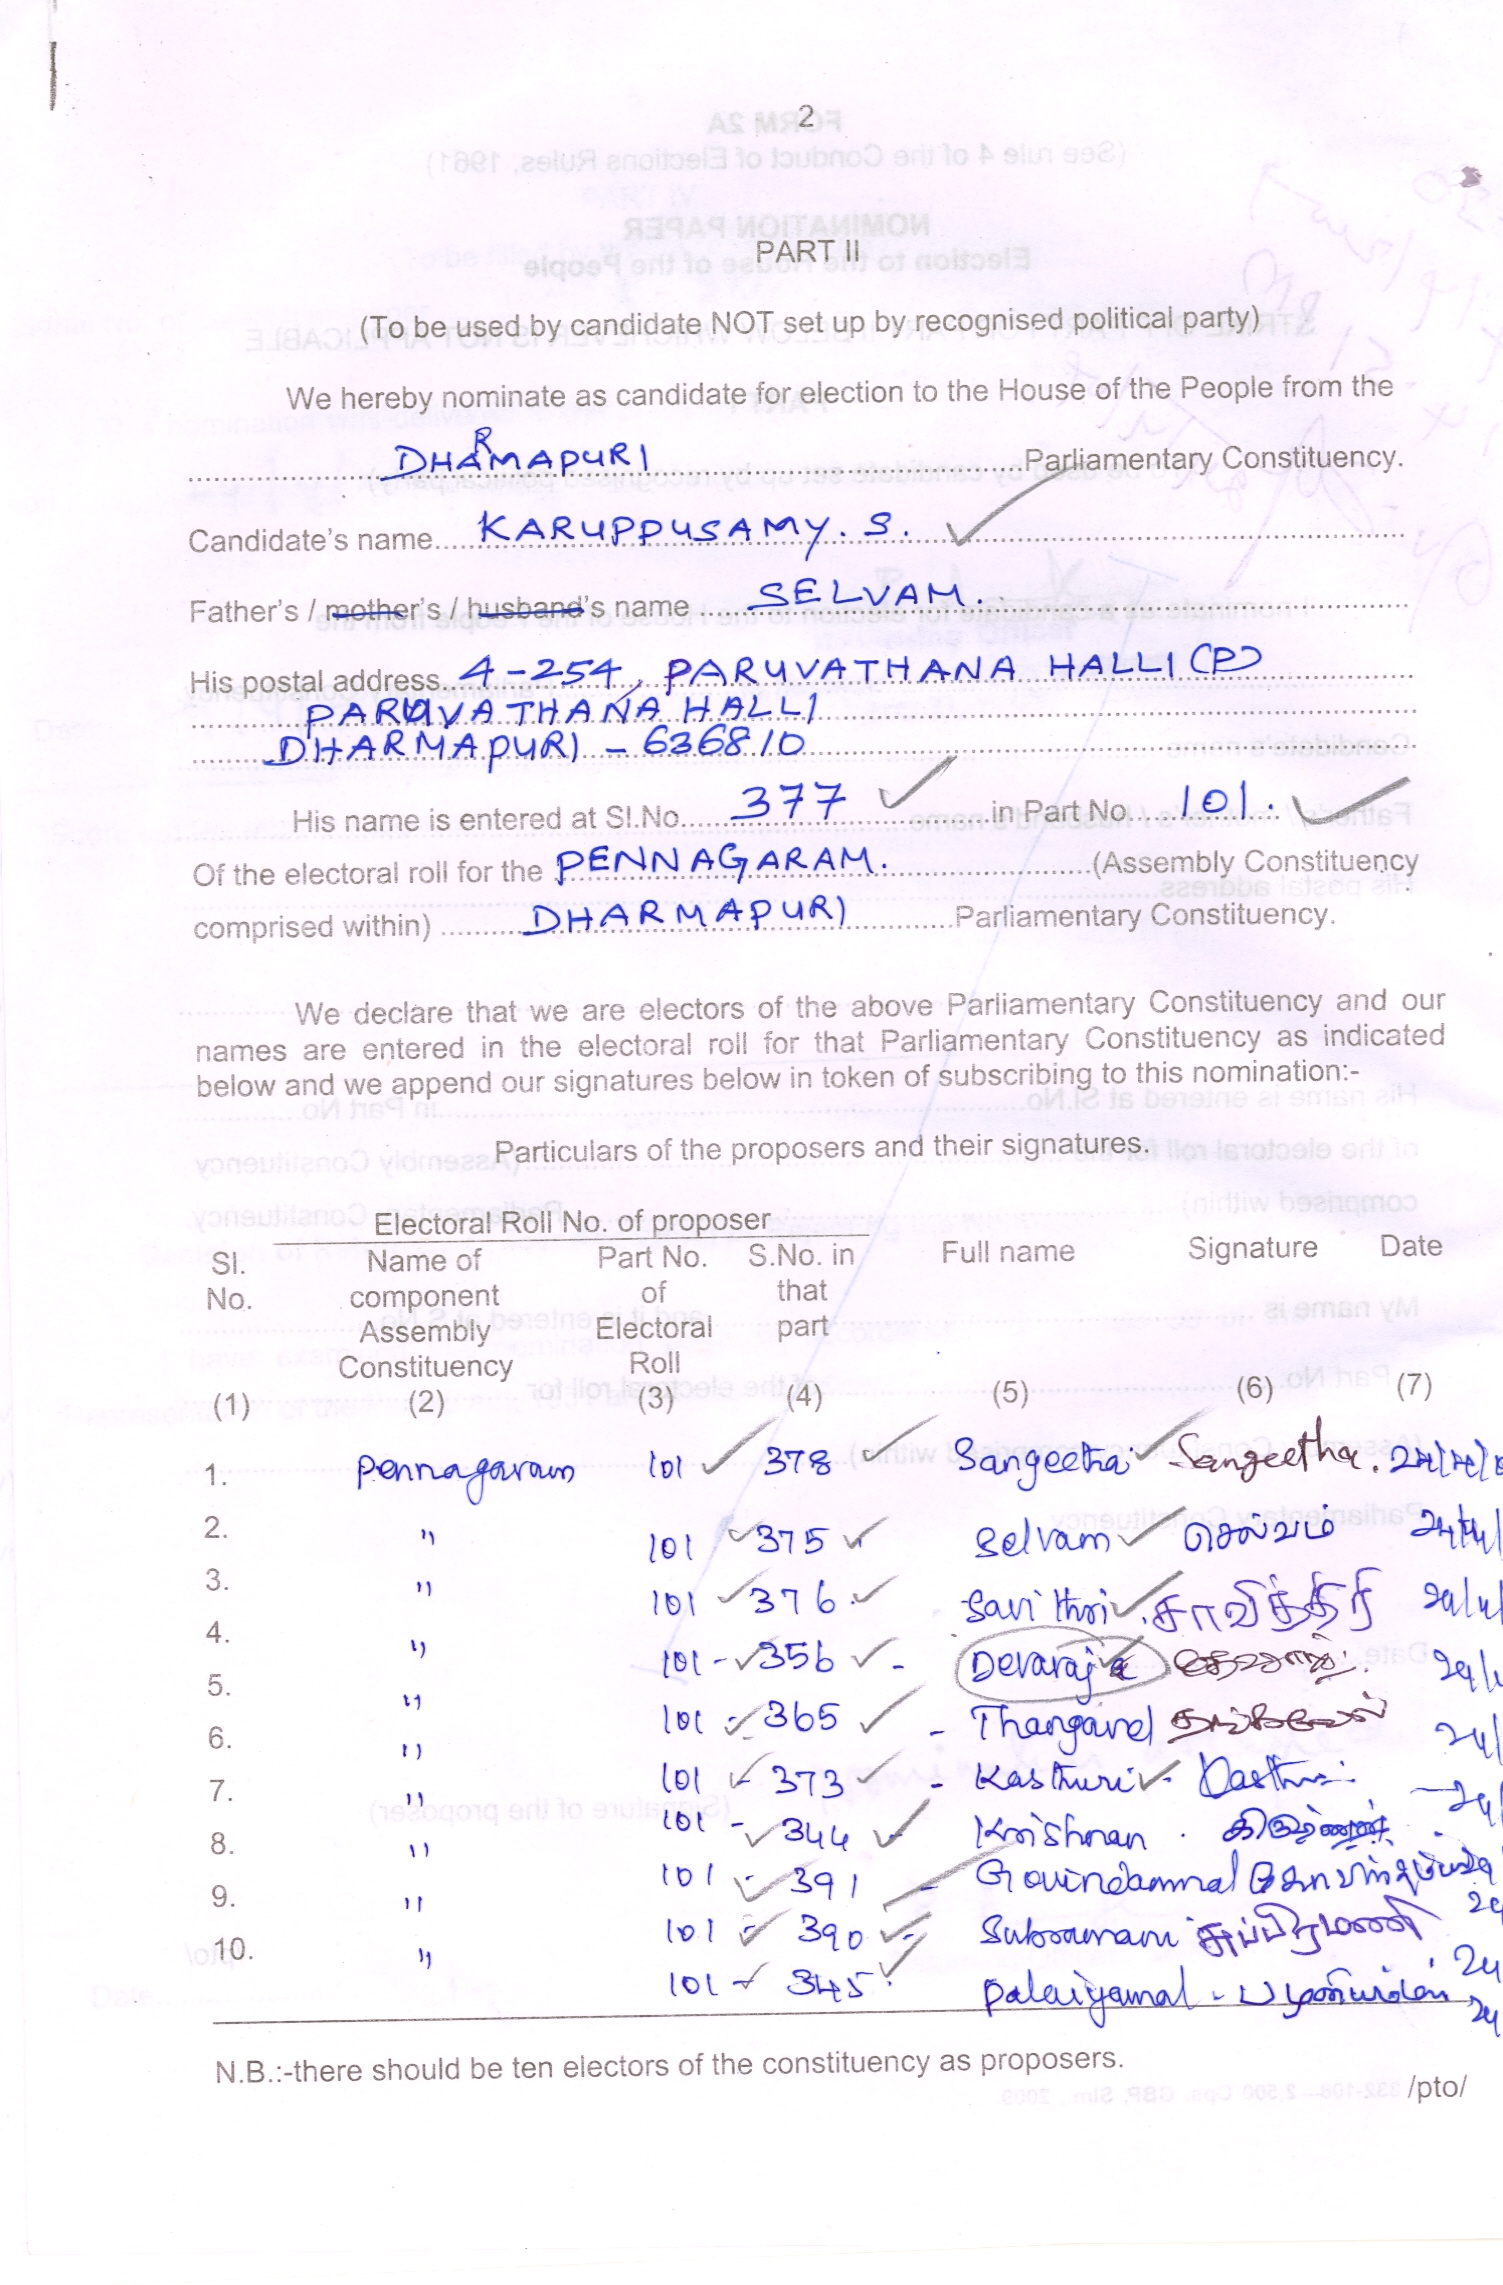 2
PART II
(To be used by candidate NOT set up by recognised political party)
We hereby nominate as candidate for election to the House of the People from the
DHARMAPURI Parliamentary Constituency.
Candidate's name KARUPPUSAMY. S.
Father's / mother's / husband's name SELVAM.
His postal address 4-254, PARUVATHANA HALLI (P)
PARUVATHANA HALLI
DHARMAPURI - 636810
His name is entered at Sl.No. 377 in Part No. 101.
Of the electoral roll for the PENNAGARAM. (Assembly Constituency
comprised within) DHARMAPURI Parliamentary Constituency.
We declare that we are electors of the above Parliamentary Constituency and our
names are entered in the electoral roll for that Parliamentary Constituency as indicated
below and we append our signatures below in token of subscribing to this nomination:-
Particulars of the proposers and their signatures.
Electoral Roll No. of proposer
Sl. Name of Part No. S.No. in Full name Signature Date
No. component of that
Assembly Electoral part
Constituency Roll
(1) (2) (3) (4) (5) (6) (7)
1. Pennagaram 101 378 Sangeetha Sangeetha.
2. " 101 375 Selvam செல்வம்
3. " 101 376 Savithri சாவித்திரி
4. " 101 - 356 - Devaraj
5. " 101 - 365 - Thangavel தங்கவேல்
6. " 101 - 373 - Kasthuri - Kasthuri
7. " 101 - 344 - Krishnan
8. " 101 - 391 - Govindammal
9. " 101 - 390 - Subramani சுப்பிரமணி
10. " 101 - 345 Palaiyamal -
N.B.:-there should be ten electors of the constituency as proposers.
/pto/